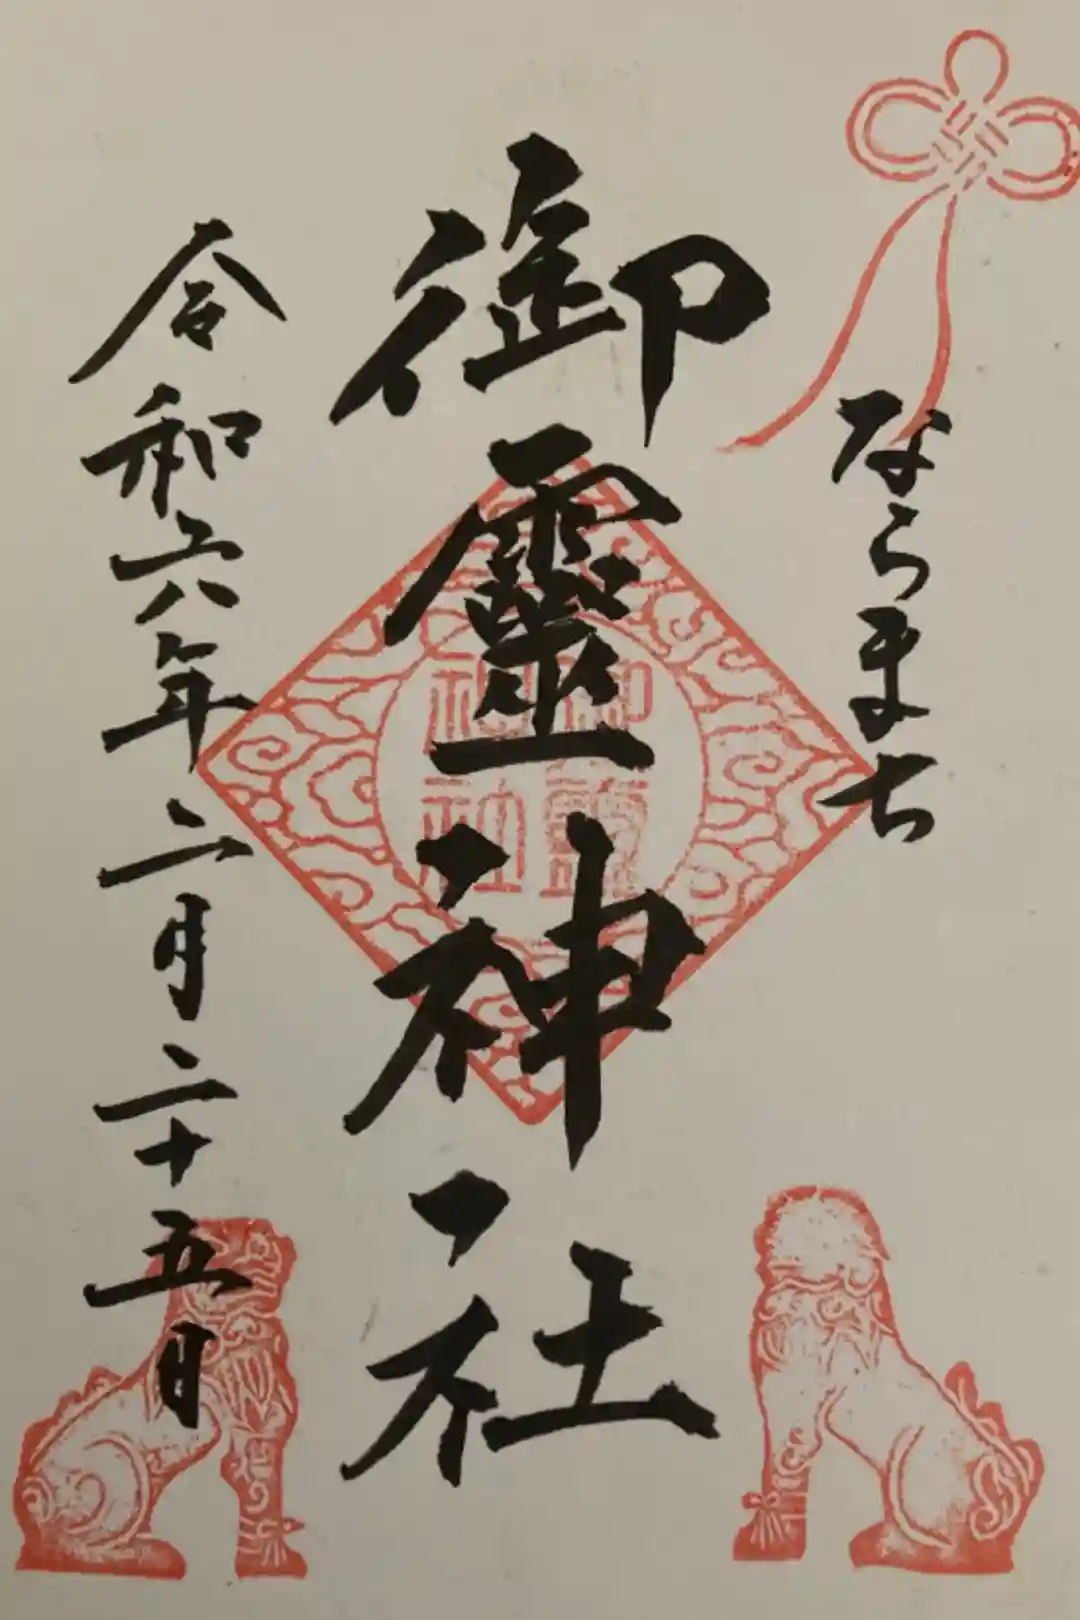 ならまち
御靈神社
御靈
神社
令和六年二月二十五日